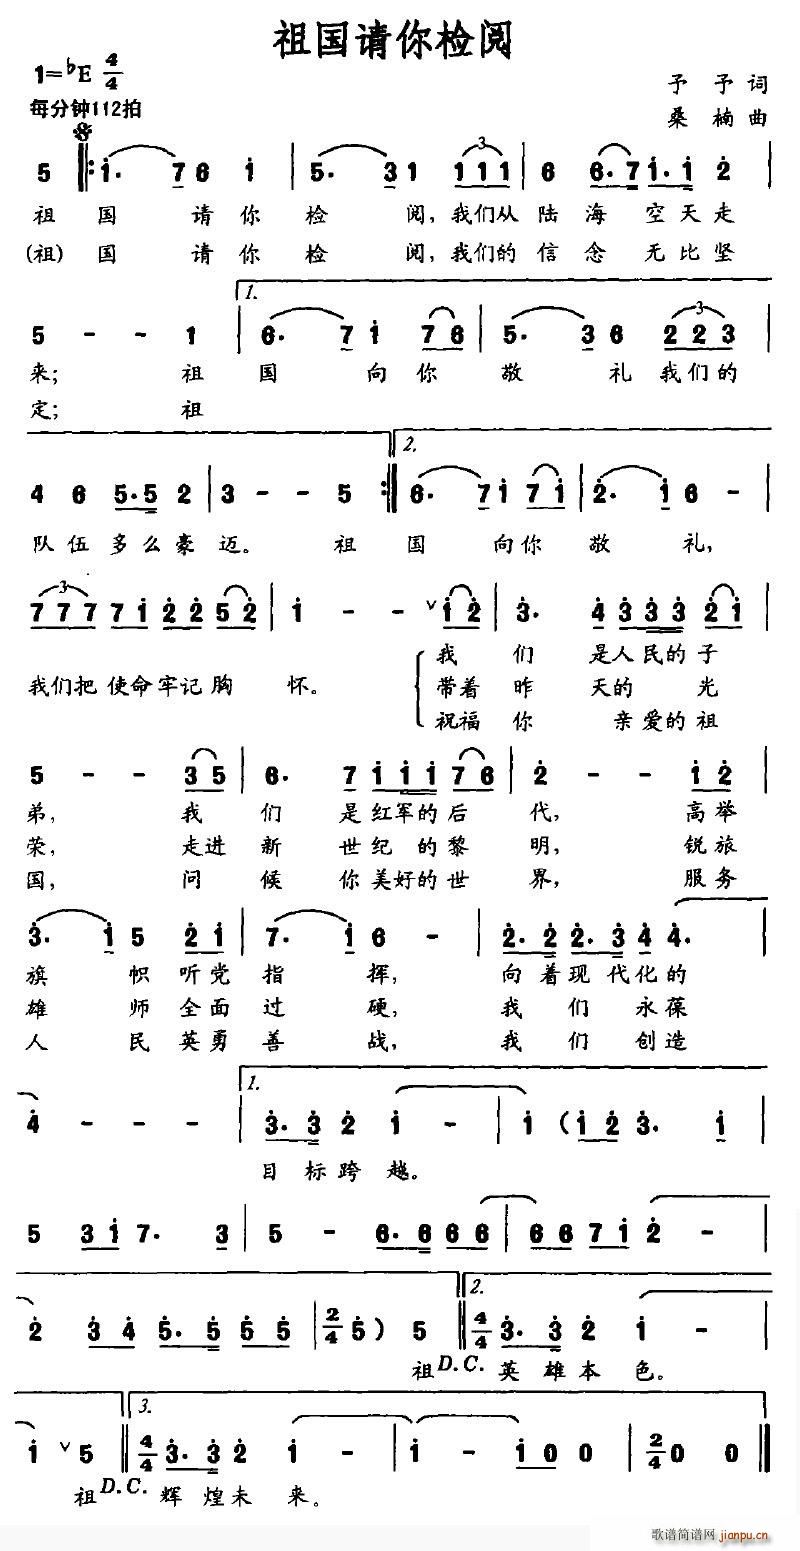 祖国请你检阅
1=♭E 4/4
予 予 词
每分钟112拍
桑 楠 曲
5 1. 7 6 1 5. 3 1 1 1 1 6 6. 7 1. 1 2
祖 国 请 你 检 阅, 我们从 陆 海 空天走
(祖) 国 请 你 检 阅, 我们的 信 念 无比坚
1.
5 - - 1 6. 7 1 7 6 5. 3 6 2 2 3
来; 祖 国 向 你 敬 礼 我们的
定; 祖
2.
4 6 5. 5 2 3 - - 5 6. 7 1 7 1 2. 1 6 -
队 伍 多 么 豪 迈。 祖 国 向你 敬 礼,
7 7 7 7 1 2 2 5 2 1 - - 1 2 3. 4 3 3 3 2 1
我 们 是人民的子
我们把 使命牢记胸 怀。 带着 昨 天的 光
祝福 你 亲爱的祖
5 - - 3 5 6. 7 1 1 1 7 6 2 - - 1 2
弟, 我 们 是红军的后 代, 高举
荣, 走进 新 世纪 的黎 明, 锐旅
国, 问 候 你美好的世 界, 服务
3. 1 5 2 1 7. 1 6 - 2. 2 2. 3 4 4.
旗 帜 听党 指 挥, 向 着现 代化的
雄 师 全面 过 硬, 我 们 永葆
人 民 英勇 善 战, 我 们 创造
1.
4 - - - 3. 3 2 1 - 1 (1 2 3. 1
目 标 跨 越。
5 3 1 7. 3 5 - 6. 6 6 6 6 6 7 1 2 -
2.
2 3 4 5. 5 5 5 2/4 5) 5 4/4 3. 3 2 1 -
祖 D.C. 英 雄 本 色。
3.
1 5 4/4 3. 3 2 1 - 1 - 1 0 0 2/4 0 0
祖 D.C. 辉 煌 未 来。
歌谱简谱网
jianpu.cn